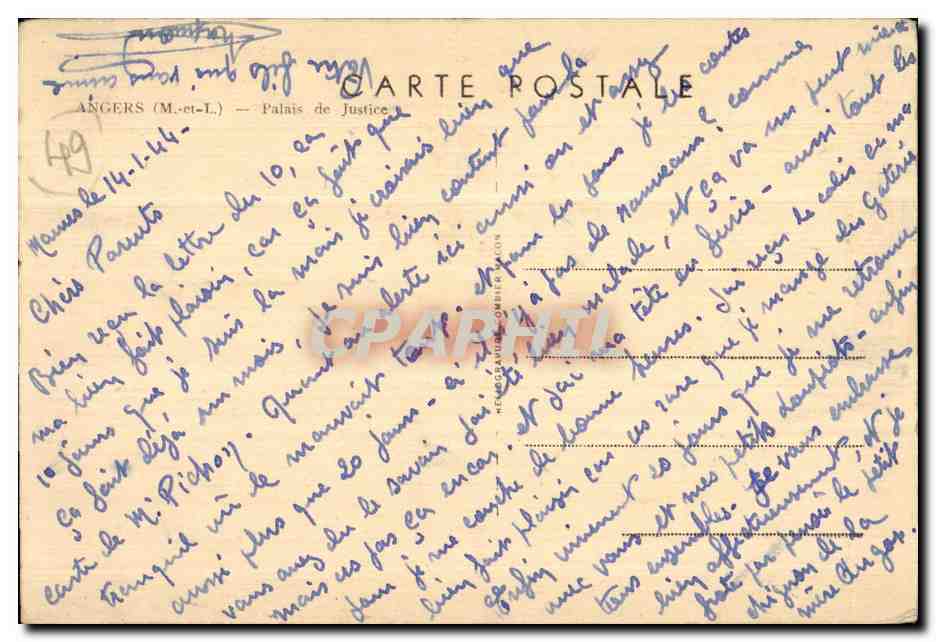 CARTE POSTALE
ANGERS (M.-et-L.) — Palais de Justice
(49)
HELIOGRAVURE COMBIER MACON
CPARPHIL
le 14-1-44-
Chèrs Parents
Bien reçu la lettre du 10, ça
ma bien fait plaisir, car ça fait que
10 jours que je suis la mais je croirais bien que
ça fait déjà un mois! je suis bien content pour la
carte de M. Pichon. Quand au reste ici aussi on est assez
tranquil vu le mauvait temps. et pour les jours je les contes
aussi plus que 20 jours - à il y a pas de nouveau? comme
vous avez du le savoir j'ai été bien malade, et ça va un peut mieux
mais ces pas ça encor. et j'ai ma tête en feu - aussi tout les
jour je me couche de bonne heures. J'ai reçu le colis ce ma
bien fait plaisir car ces rare que je mange des Gateries
Enfin vivement 20 jours que je me retrouve
avec vous et mes petits - enfin
tous ensembles. Je vous embrasse
bien affectueusement, et je
pas pensés le petit
de la
mère
Votre fils qui vous aime